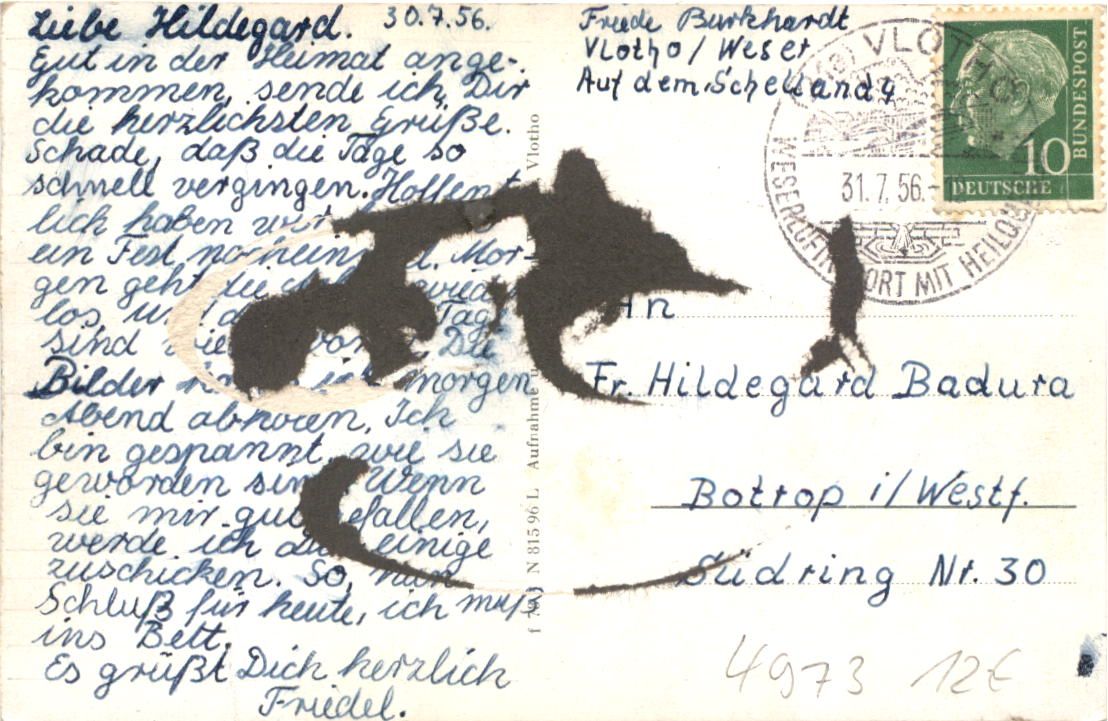 Liebe Hildegard. 30.7.56.
Gut in der Heimat ange-
kommen, sende ich Dir
die herzlichsten Grüße.
Schade, daß die Tage so
schnell vergingen. Hoffent
lich haben wir
ein Fest noch ein Mor-
gen geht die
los, Tage
sind Die
Bilder ich morgen
Abend abholen, Ich
bin gespannt, wie sie
geworden sind Wenn
sie mir gut gefallen,
werde ich Dir einige
zuschicken. So, nun
Schluß für heute, ich muß
ins Bett.
Es grüßt Dich herzlich
Friedel.
f 793 N 815 96 L Aufnahme u Vlotho
Friede Burkhardt
Vlotho / Weser
Auf dem Schell
VLOTHO
31.7.56.
WESER ORT MIT
10
DEUTSCHE
BUNDESPOST
An
Fr. Hildegard Badura
Botrop i/Westf.
Südring Nr. 30
4973 12€